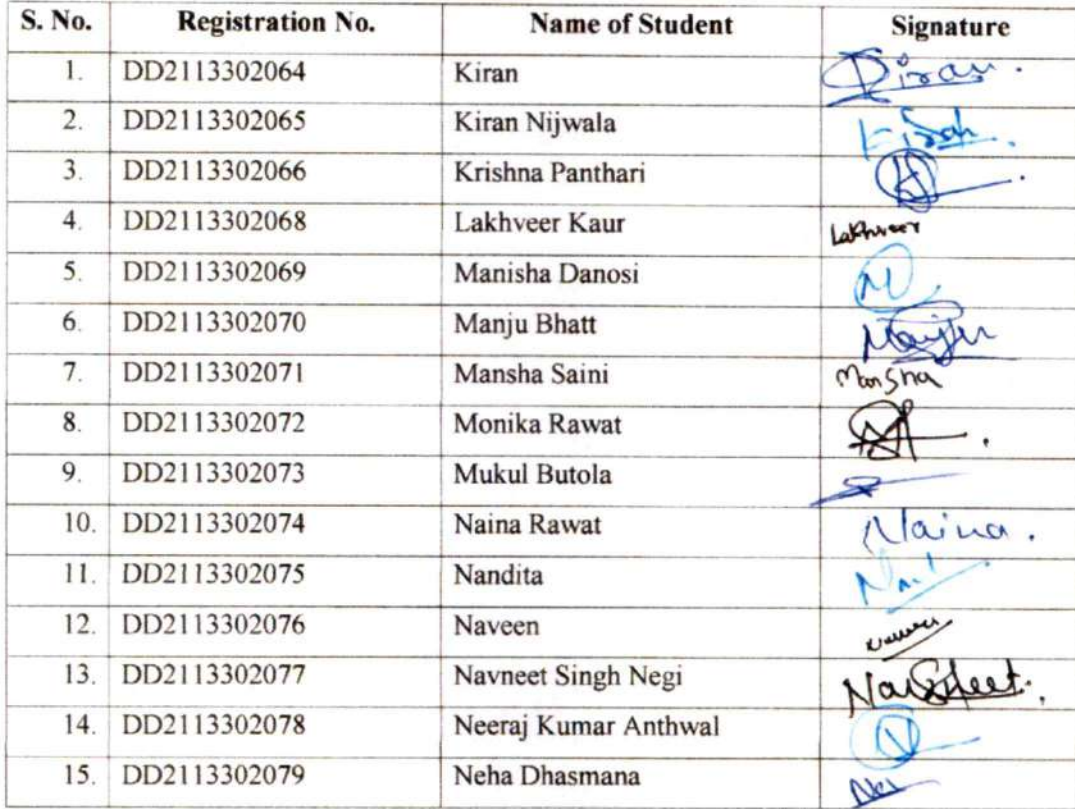 S. No. Registration No. Name of Student Signature
1. DD2113302064 Kiran Kiran.
2. DD2113302065 Kiran Nijwala Kiran.
3. DD2113302066 Krishna Panthari
4. DD2113302068 Lakhveer Kaur Lakhveer
5. DD2113302069 Manisha Danosi
6. DD2113302070 Manju Bhatt Manju
7. DD2113302071 Mansha Saini Mansha
8. DD2113302072 Monika Rawat
9. DD2113302073 Mukul Butola
10. DD2113302074 Naina Rawat Naina.
11. DD2113302075 Nandita
12. DD2113302076 Naveen
13. DD2113302077 Navneet Singh Negi Navneet.
14. DD2113302078 Neeraj Kumar Anthwal
15. DD2113302079 Neha Dhasmana